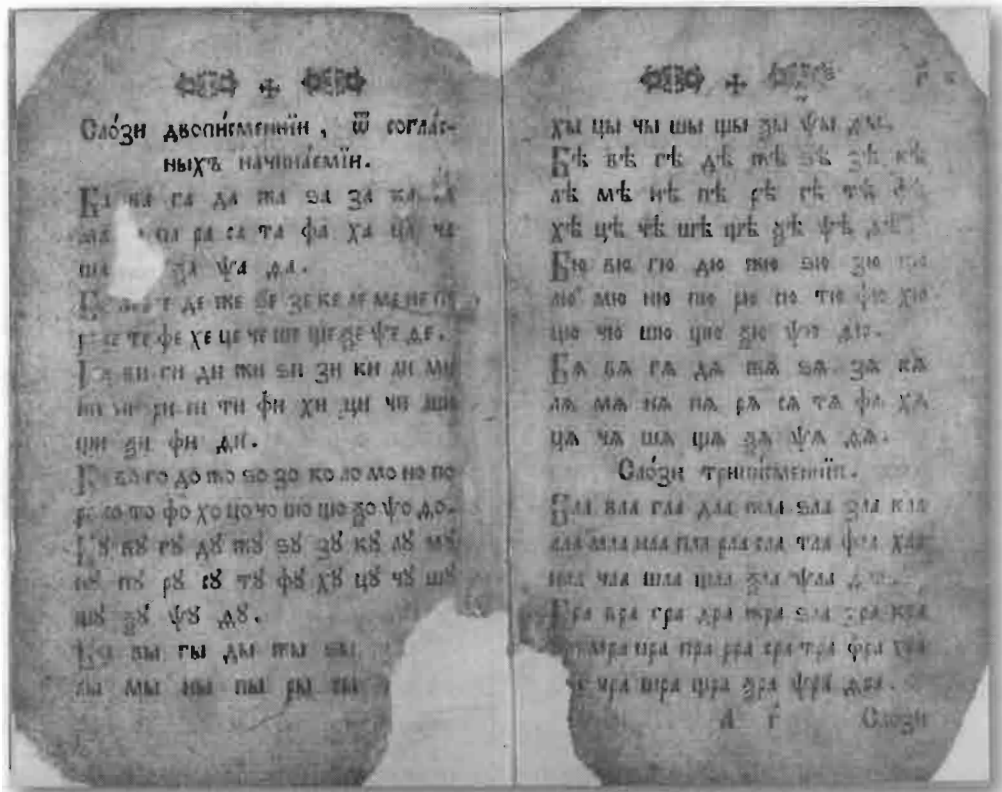 Сло́зи двопи́сменнїи , ѿ согла́с-
ныхъ начина́емїи.
Ба ва га да жа ѕа за ка
ма па ра са та фа ха ца ча
ша ѯа ѱа ѳа.
Бе ве ге де же ѕе зе ке ле ме не пе
ре се те фе хе це че ше ще ѯе ѱе ѳе.
ви ги ди жи ѕи зи ки ли ми
ни пи ри си ти фи хи ци чи ши
щи ѯи ѱи ѳи.
Бо во го до жо ѕо зо ко ло мо но по
ро со то фо хо цо чо шо що ѯо ѱо ѳо.
Бꙋ вꙋ гꙋ дꙋ жꙋ ѕꙋ зꙋ кꙋ лꙋ мꙋ
нꙋ пꙋ рꙋ сꙋ тꙋ фꙋ хꙋ цꙋ чꙋ шꙋ
щꙋ ѯꙋ ѱꙋ ѳꙋ.
Бы вы гы ды жы ѕы
лы мы ны пы ры сы
хы цы чы шы щы ѯы ѱы ѳы.
Бѣ вѣ гѣ дѣ жѣ ѕѣ зѣ кѣ
лѣ мѣ нѣ пѣ рѣ сѣ тѣ фѣ
хѣ цѣ чѣ шѣ щѣ ѯѣ ѱѣ ѳѣ.
Бю вю гю дю жю ѕю зю кю
лю мю ню пю рю сю тю фю хю
цю чю шю щю ѯю ѱю ѳю.
Бѧ вѧ гѧ дѧ жѧ ѕѧ зѧ кѧ
лѧ мѧ нѧ пѧ рѧ сѧ тѧ фѧ хѧ
цѧ чѧ шѧ щѧ ѯѧ ѱѧ ѳѧ.
Сло́зи трипи́сменнїи.
Бла вла гла дла жла ѕла зла кла
лла мла нла пла рла сла тла фла хла
цла чла шла щла ѯла ѱла ѳла.
Бра вра гра дра жра ѕра зра кра
мра нра пра рра сра тра фра хра
чра шра щра ѯра ѱра ѳра.
А г҃ Слози